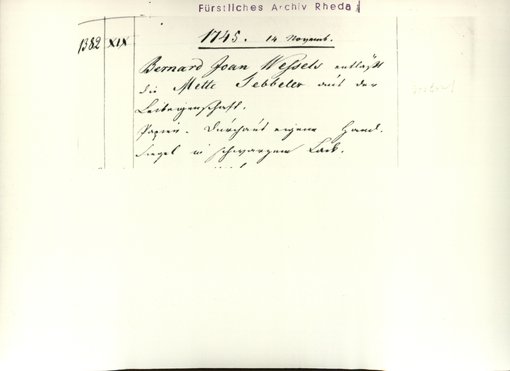 Fürstliches Archiv Rheda
1382 XIX 1745. 14 Novemb.
Bernard Joan Wessels entläßt
die Mette Tebbeler aus der
Leibeigenschaft.
Papier. Durchaus eigene Hand.
Siegel in schwarzem Lack.